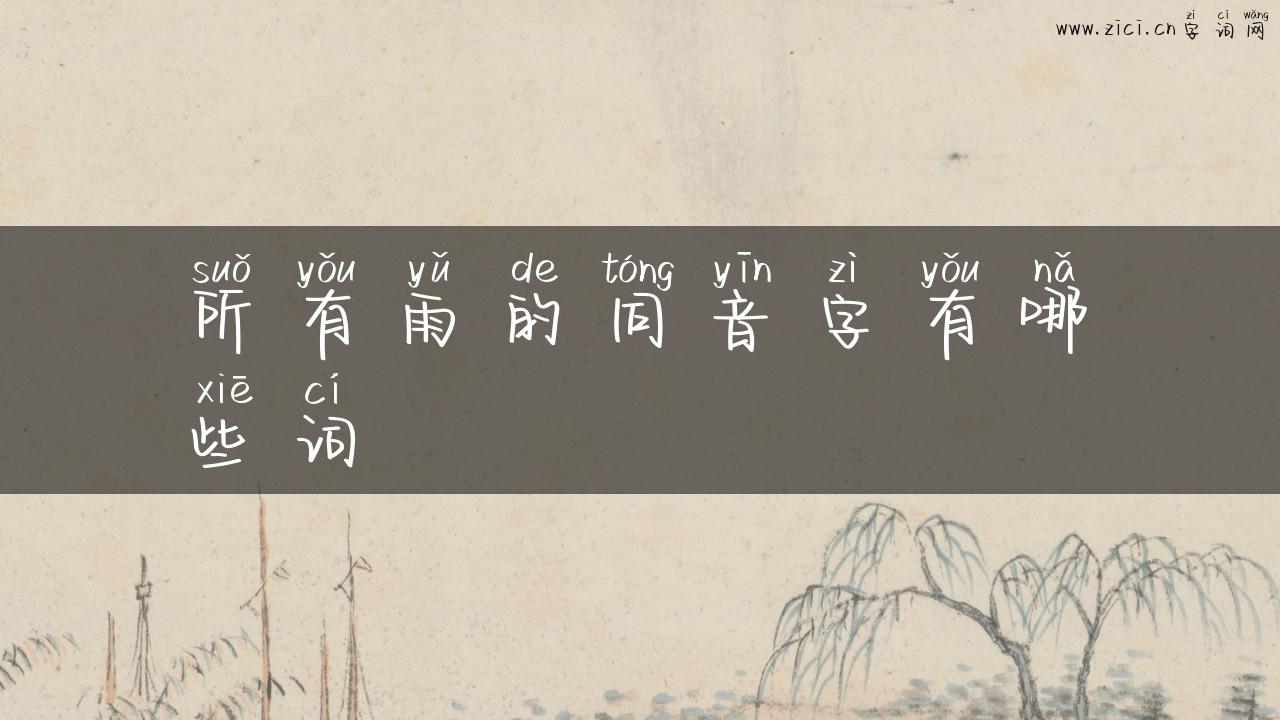 zì cí wǎng
www.zici.cn 字 词 网
suǒ yǒu yǔ de tóng yīn zì yǒu nǎ
所 有 雨 的 同 音 字 有 哪
xiē cí
些 词